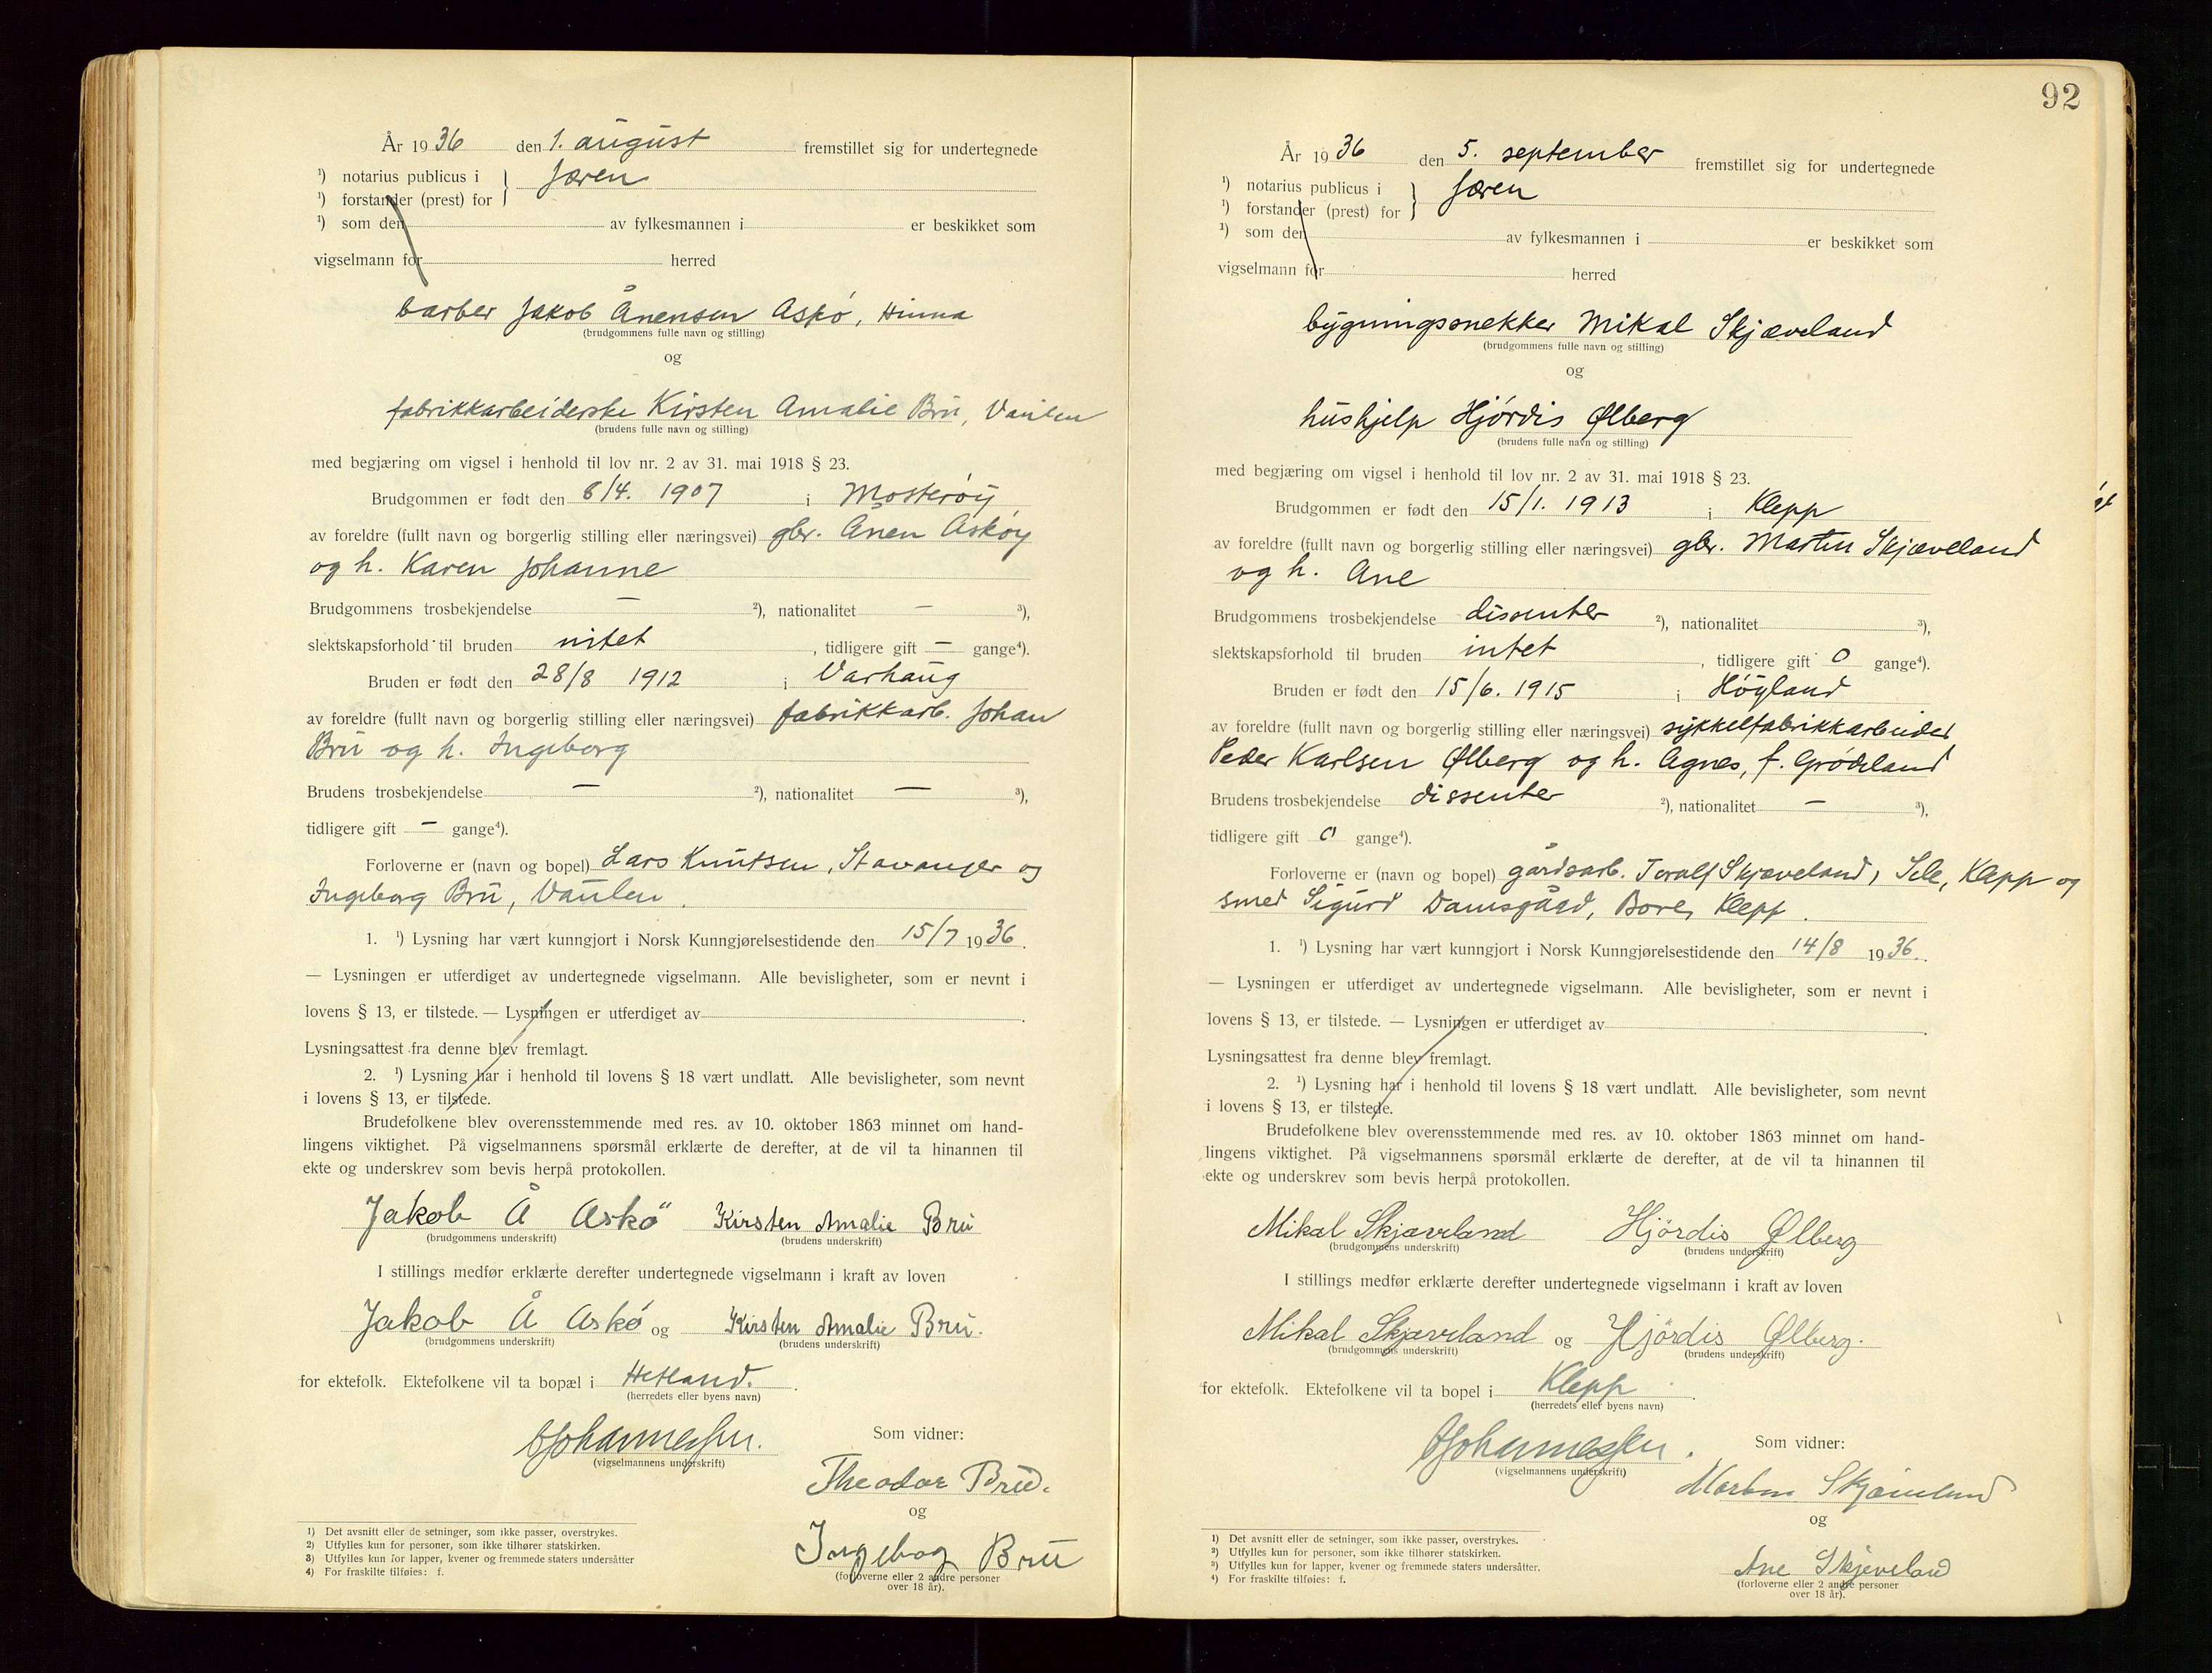 År 1936 den 1. august fremstillet sig for undertegnede
¹) notarius publicus i } Jæren
¹) forstander (prest) for
¹) som den av fylkesmannen i er beskikket som
vigselmann for herred
barber Jakob Ånensen Askö, Hinna
(brudgommens fulle navn og stilling)
og
fabrikkarbeiderske Kirsten Amalie Bru, Vaulen
(brudens fulle navn og stilling)
med begjæring om vigsel i henhold til lov nr. 2 av 31. mai 1918 § 23.
Brudgommen er født den 8/4. 1907 i Mosterøy
av foreldre (fullt navn og borgerlig stilling eller næringsvei) gbr. Ånen Askøy
og h. Karen Johanne
Brudgommens trosbekjendelse — ²), nationalitet — ³),
slektskapsforhold til bruden intet , tidligere gift — gange⁴).
Bruden er født den 28/8 1912 i Varhaug
av foreldre (fullt navn og borgerlig stilling eller næringsvei) fabrikkarb. Johan
Bru og h. Ingeborg
Brudens trosbekjendelse — ²), nationalitet — ³),
tidligere gift — gange⁴).
Forloverne er (navn og bopel) Lars Knutsen, Stavanger og
Ingeborg Bru, Vaulen.
1. ¹) Lysning har vært kunngjort i Norsk Kunngjørelsestidende den 15/7 1936.
— Lysningen er utferdiget av undertegnede vigselmann. Alle bevisligheter, som er nevnt i
lovens § 13, er tilstede. — Lysningen er utferdiget av .
Lysningsattest fra denne blev fremlagt.
2. ¹) Lysning har i henhold til lovens § 18 vært undlatt. Alle bevisligheter, som nevnt
i lovens § 13, er tilstede.
Brudefolkene blev overensstemmende med res. av 10. oktober 1863 minnet om hand-
lingens viktighet. På vigselmannens spørsmål erklærte de derefter, at de vil ta hinannen til
ekte og underskrev som bevis herpå protokollen.
Jakob Å Askö Kirsten Amalie Bru
(brudgommens underskrift) (brudens underskrift)
I stillings medfør erklærte derefter undertegnede vigselmann i kraft av loven
Jakob Å Askö og Kirsten Amalie Bru.
(brudgommens underskrift) (brudens underskrift)
for ektefolk. Ektefolkene vil ta bopæl i Hetland.
(herredets eller byens navn)
Johannessen.
(vigselmannens underskrift)
Som vidner:
Theodor Bru.
og
Ingebog Bru
(forloverne eller 2 andre personer
over 18 år).
1) Det avsnitt eller de setninger, som ikke passer, overstrykes.
2) Utfylles kun for personer, som ikke tilhører statskirken.
3) Utfylles kun for lapper, kvener og fremmede staters undersåtter
4) For fraskilte tilføies: f.
92
År 1936 den 5. september fremstillet sig for undertegnede
¹) notarius publicus i } Jæren
¹) forstander (prest) for
¹) som den av fylkesmannen i er beskikket som
vigselmann for herred
bygningssnekker Mikal Skjæveland
(brudgommens fulle navn og stilling)
og
hushjelp Hjördis Ølberg
(brudens fulle navn og stilling)
med begjæring om vigsel i henhold til lov nr. 2 av 31. mai 1918 § 23.
Brudgommen er født den 15/1. 1913 i Klepp
av foreldre (fullt navn og borgerlig stilling eller næringsvei) gbr. Martin Skjæveland
og h. Ane
Brudgommens trosbekjendelse dissenter ²), nationalitet ³),
slektskapsforhold til bruden intet , tidligere gift 0 gange⁴).
Bruden er født den 15/6. 1915 i Høyland
av foreldre (fullt navn og borgerlig stilling eller næringsvei) sykkelfabrikkarbeider
Peder Karlsen Ølberg og h. Agnes, f. Grödeland
Brudens trosbekjendelse dissenter ²), nationalitet — ³),
tidligere gift 0 gange⁴).
Forloverne er (navn og bopel) gårdsarb. Toralf Skjæveland, Sele, Klepp og
smed Sigurd Damsgård, Bore, Klepp.
1. ¹) Lysning har vært kunngjort i Norsk Kunngjørelsestidende den 14/8 1936.
— Lysningen er utferdiget av undertegnede vigselmann. Alle bevisligheter, som er nevnt i
lovens § 13, er tilstede. — Lysningen er utferdiget av .
Lysningsattest fra denne blev fremlagt.
2. ¹) Lysning har i henhold til lovens § 18 vært undlatt. Alle bevisligheter, som nevnt
i lovens § 13, er tilstede.
Brudefolkene blev overensstemmende med res. av 10. oktober 1863 minnet om hand-
lingens viktighet. På vigselmannens spørsmål erklærte de derefter, at de vil ta hinannen til
ekte og underskrev som bevis herpå protokollen.
Mikal Skjæveland Hjördis Ølberg
(brudgommens underskrift) (brudens underskrift)
I stillings medfør erklærte derefter undertegnede vigselmann i kraft av loven
Mikal Skjæveland og Hjördis Ølberg.
(brudgommens underskrift) (brudens underskrift)
for ektefolk. Ektefolkene vil ta bopel i Klepp.
(herredets eller byens navn)
Johannessen.
(vigselmannens underskrift)
Som vidner:
Skjæveland
og
Ane Skjeveland
(forloverne eller 2 andre personer
over 18 år).
¹) Det avsnitt eller de setninger, som ikke passer, overstrykes.
²) Utfylles kun for personer, som ikke tilhører statskirken.
³) Utfylles kun for lapper, kvener og fremmede staters undersåtter.
⁴) For fraskilte tilføies: f.